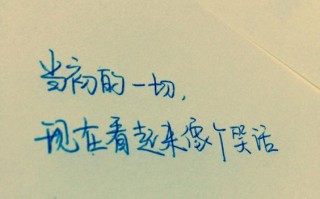 当初的一切,
现在看起来像个笑话